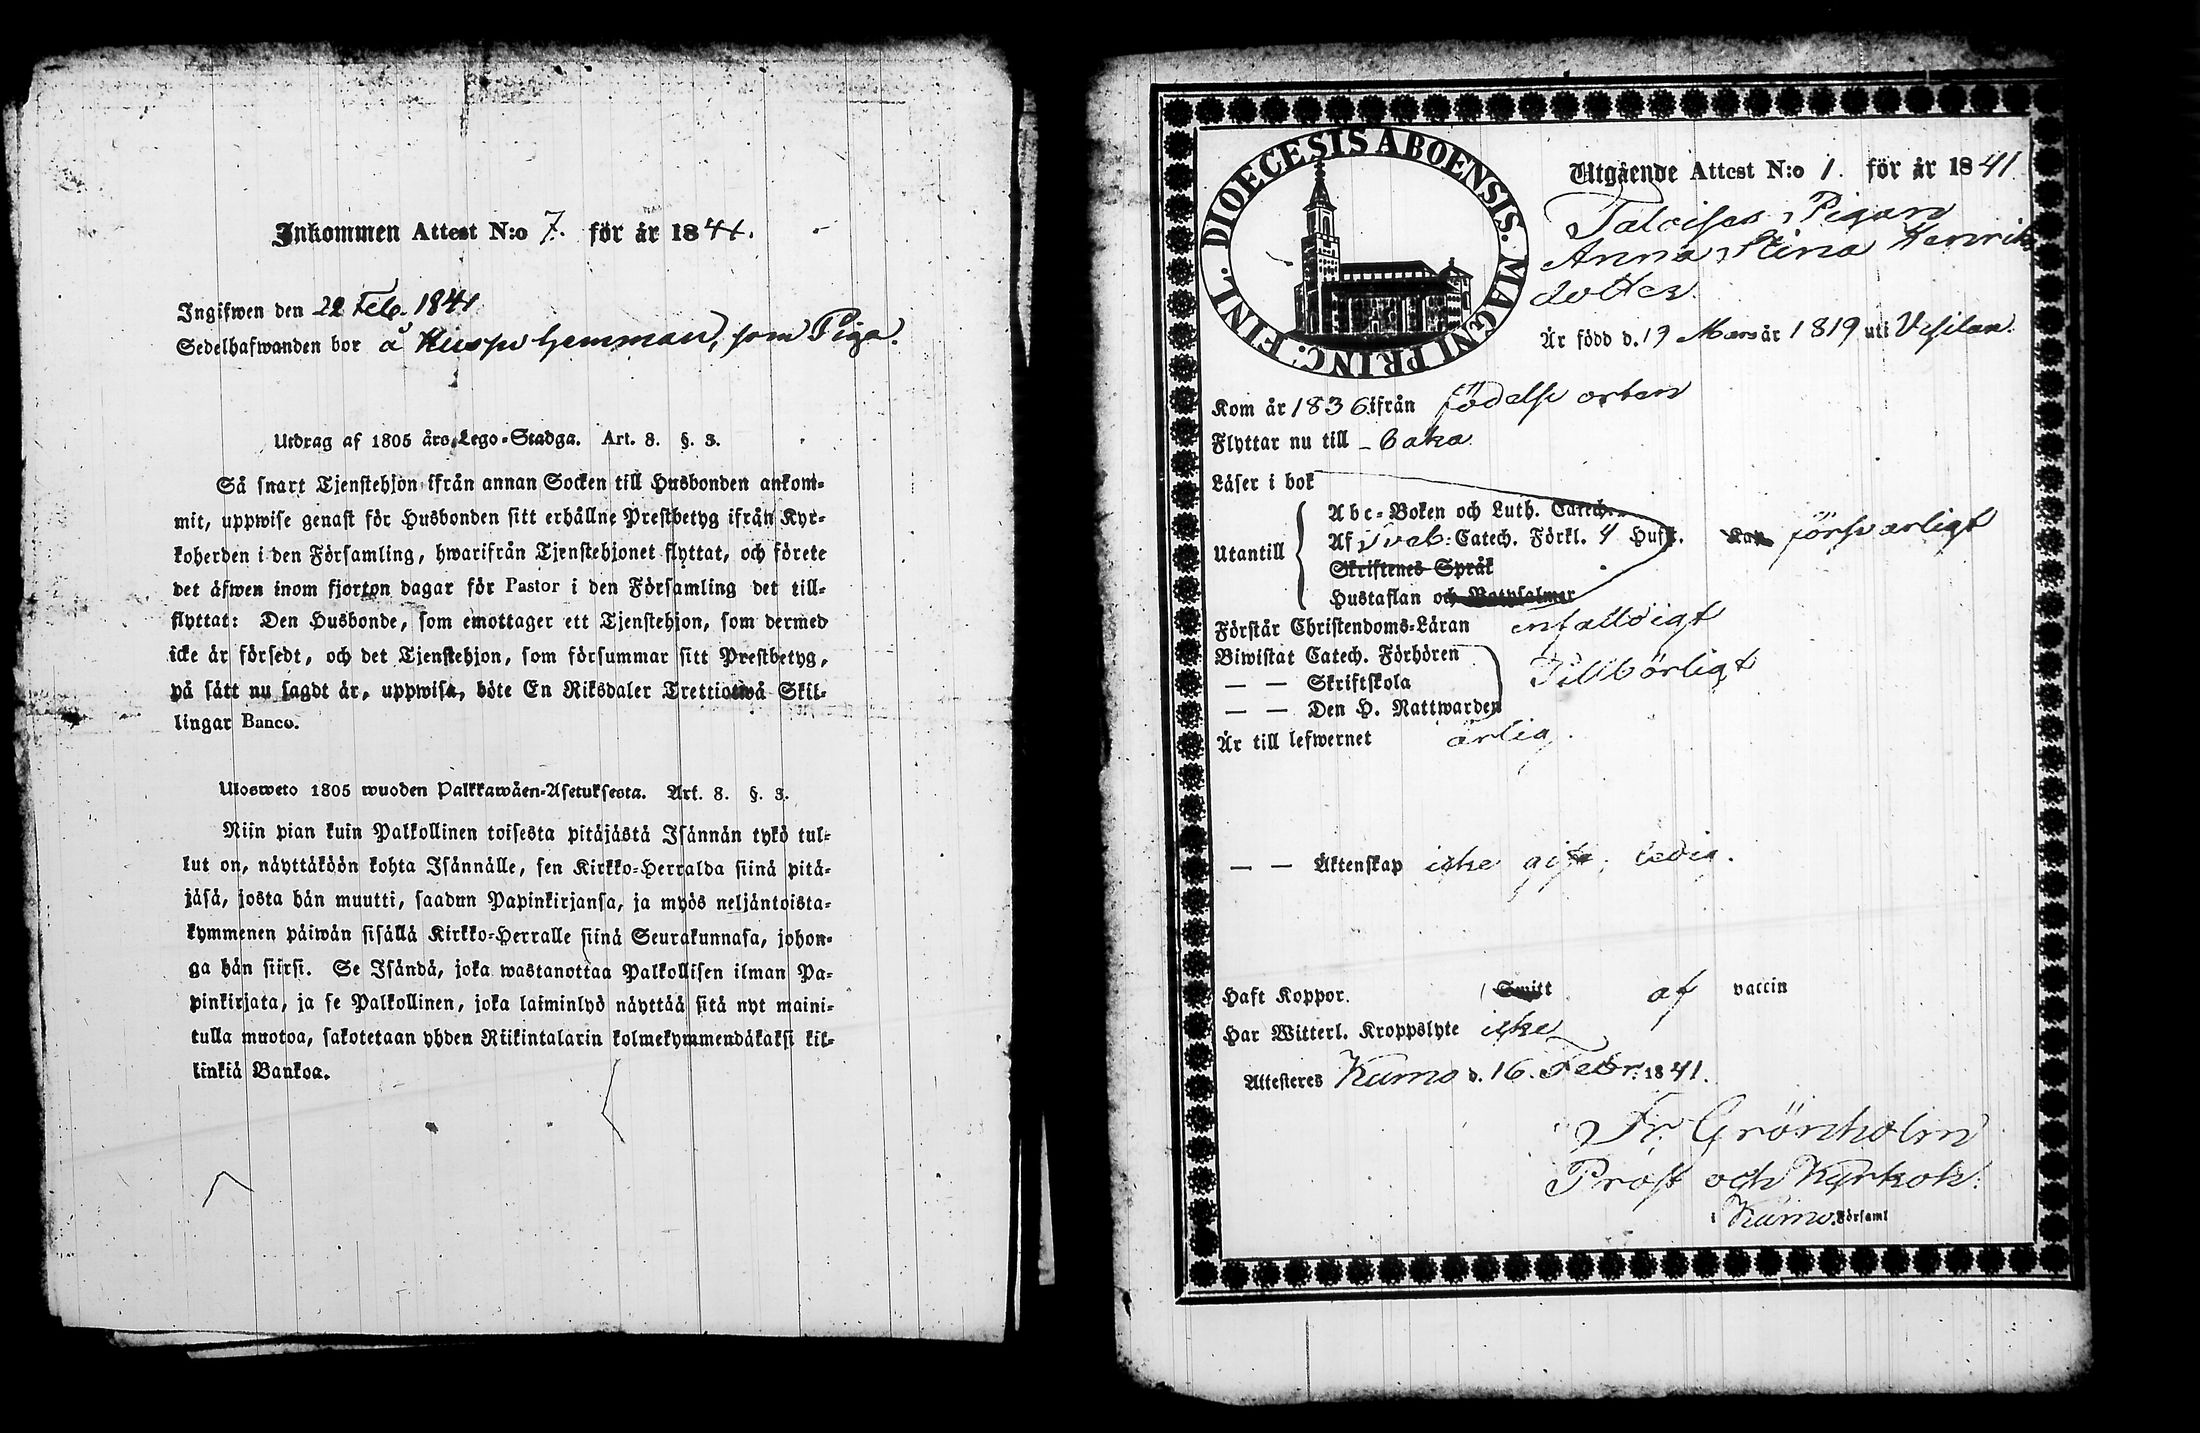 Inkommen Attest N:o 7. för år 1841.
Ingifwen den 22 Feb. 1841
Sedelhafwanden bor å hemman, som Piga.
Utdrag af 1805 års Lego-Stadga. Art. 8. §. 3.
Så snart Tjenstehjon ifrån annan Socken till Husbonden ankom-
mit, uppwise genast för Husbonden sitt erhållne Prestbetyg ifrån Kyr-
koherden i den Församling, hwarifrån Tjenstehjonet flyttat, och förete
det äfwen inom fjorton dagar för Pastor i den Församling det till-
flyttat: Den Husbonde, som emottager ett Tjenstehjon, som dermed
icke är försedt, och det Tjenstehjon, som försummar sitt Prestbetyg,
på sätt nu sagdt är, uppwisa, böte En Riksdaler Trettiotwå Skil-
lingar Banco.
Ulosweto 1805 wuoden Palkkawäen-Asetuksesta. Art. 8. §. 3.
Niin pian kuin Palkollinen toisesta pitäjästä Isännän tykö tul-
lut on, näyttäköön kohta Isännälle, sen Kirkko-Herralda siinä pitä-
jäsä, josta hän muutti, saadun Papinkirjansa, ja myös neljäntoista-
kymmenen päiwän sisällä Kirkko-Herralle siinä Seurakunnasa, johon-
ga hän siirsi. Se Isändä, joka wastanottaa Palkollisen ilman Pa-
pinkirjata, ja se Palkollinen, joka laiminlyö näyttää sitä nyt maini-
tulla muotoa, sakotetaan yhden Riikintalarin kolmekymmendäkaksi kil-
linkiä Bankoa.
DIOECESIS ABOENSIS. MAGNI PRINC: FINL.
Utgående Attest N:o 1. för år 1841
Pigan
Anna Stina Henriks
dotter.
Är född d. 19 Mars år 1819 uti Ulfsilan.
Kom år 1836 ifrån födelse orten
Flyttar nu till -baka
Läser i bok
Abc-Boken och Luth. Catech.
Utantill Af Sveb: Catech. Förkl. 4 Huf. Kan försvarligt
Skriftenes Språk
Hustaflan och Botpsalmer
Förstår Christendoms-Läran enfalldigt
Biwistat Catech. Förhören
— — Skriftskola Tillbörligt
— — Den H. Nattwarden
Är till lefwernet ärlig.
— — Äktenskap icke gift, ledig.
Haft Koppor. Smitt af vaccin
Har Witterl. Kroppslyte icke
Attesteres Kumo d. 16. Febr. 1841.
Fr. Grönholm
Prost och Kyrkoh:
i Kumo Församl